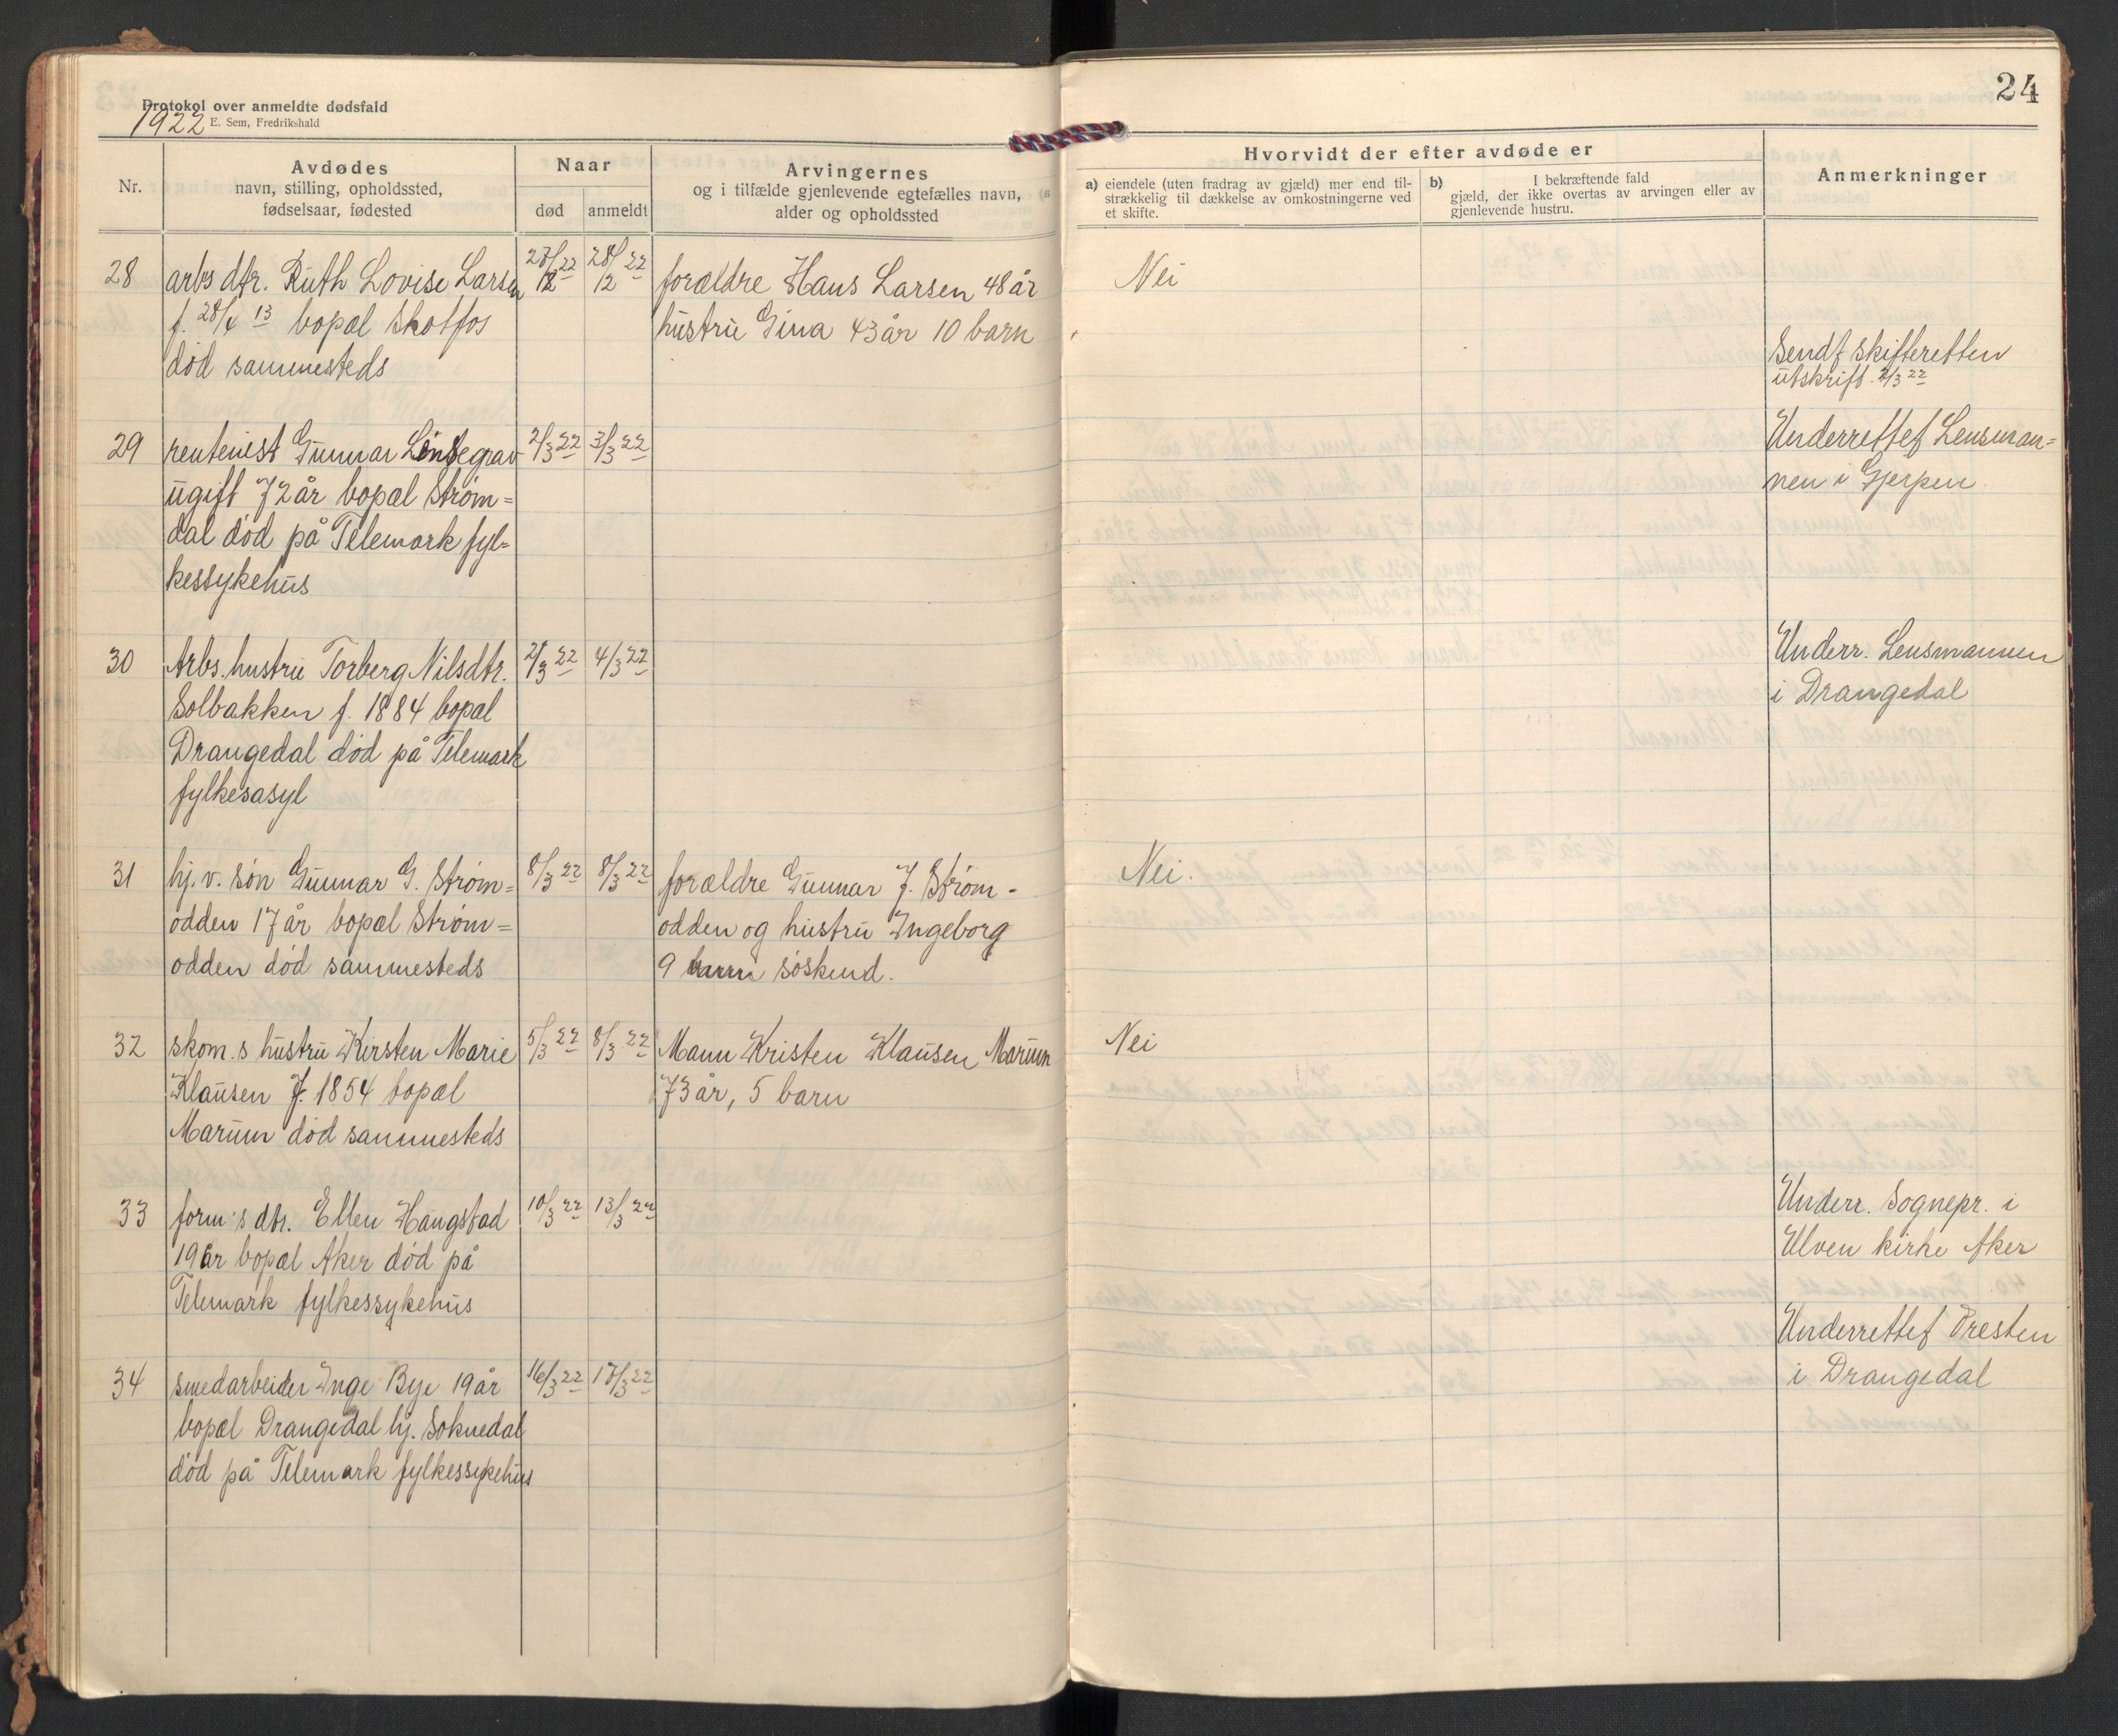 24
Protokol over anmeldte dødsfald
1922 E. Sem, Fredrikshald
Nr.
Avdødes
navn, stilling, opholdssted,
fødselsaar, fødested
Naar
død
anmeldt
Arvingernes
og i tilfælde gjenlevende egtefælles navn,
alder og opholdssted
Hvorvidt der efter avdøde er
a) eiendele (uten fradrag av gjæld) mer end til-
strækkelig til dækkelse av omkostningerne ved
et skifte.
b) I bekræftende fald
gjæld, der ikke overtas av arvingen eller av
gjenlevende hustru.
Anmerkninger
28 arbs dtr. Ruth Lovise Larsen 28/12 22 forældre Hans Larsen 48 år Nei
f. 28/4 13 bopæl Skotfos hustru Gina 43 år 10 barn
død sammesteds
Sendt skifteretten
utskrift 2/3 22
29 rentenist Gunnar 2/3 22 3/3 22 Underrettet Lensman=
ugift 72 år bopæl Strøm= nen i Gjerpen
dal død på Telemark fyl=
kessykehus
30 Arbs. hustru Torberg Nilsdtr. 2/3 22 4/3 22 Underr. Lensmannen
Solbakken f. 1884 bopæl i Drangedal
Drangedal død på Telemark
fylkesasyl
31 hj. v. søn Gunnar G. Strøm= 8/3 22 8/3 22 forældre Gunnar J. Strøm- Nei.
odden 17 år bopæl Strøm= odden og hustru Ingeborg
odden død sammesteds 9 søskend.
32 skom.s hustru Kirsten Marie 5/3 22 8/3 22 Mann Kristen Klausen Marum Nei
Klausen f. 1854 bopæl 73 år, 5 barn
Marum død sammesteds
33 form's dtr. Ellen Haugstad 10/3 22 13/3 22 Underr. Sognepr. i
19 år bopæl Aker død på Ulven kirke Aker
Telemark fylkessykehus
Underrettet Presten
i Drangedal
34 smedarbeider Inge Bye 19 år 16/3 22 17/3 22
bopæl Drangedal hj. Soknedal
død på Telemark fylkessykehus